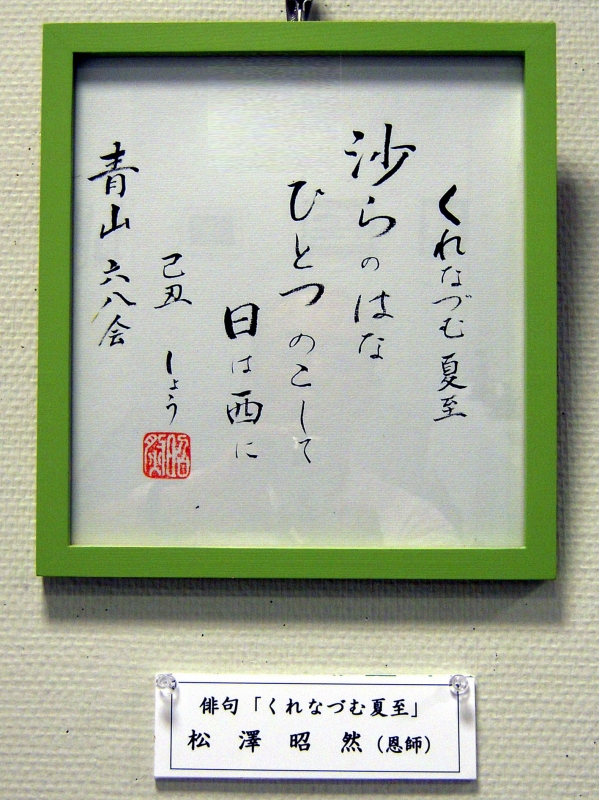 くれなづむ 夏至
沙らのはな
ひとつのこして
日は西に
己丑 しょう
青山 六八会
俳句「くれなづむ夏至」
松澤昭然(恩師)